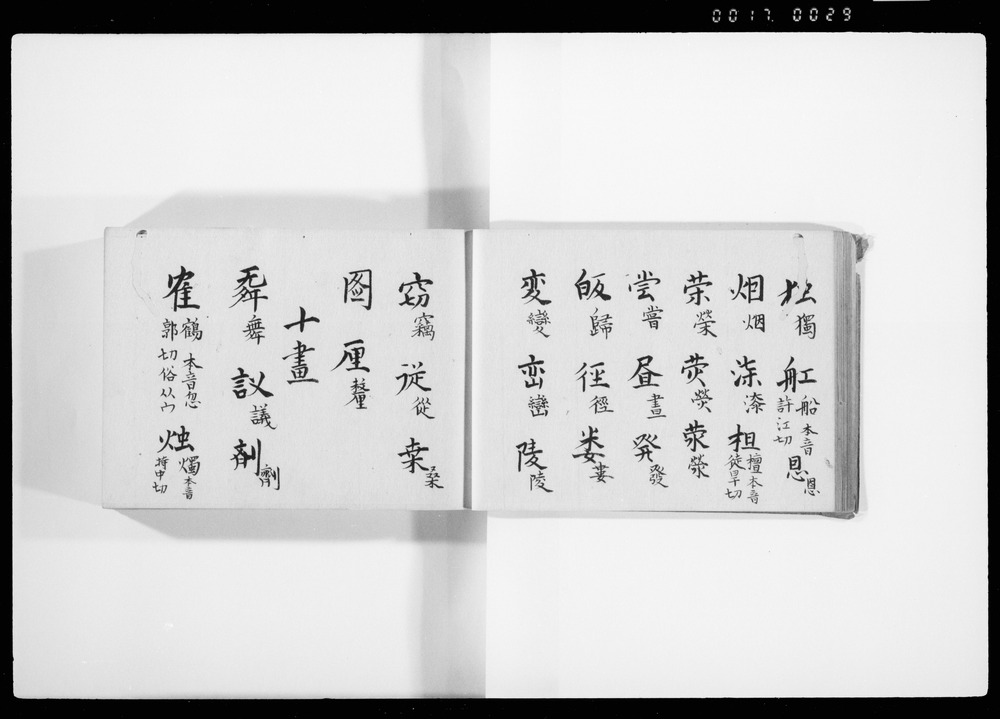 0017 0029
独獨 舡船本音許江切 恩恩
烟烟 柒漆 担檀本音徒旱切
荣榮 荧熒 荥滎
尝嘗 昼晝 発發
皈歸 径徑 娄婁
变變 峦巒 陵陵
窃竊 従從 桒桑
图 厘釐
十畫
舞 議議 剤劑
隺鶴本音忽郭切俗从宀 烛燭本音持中切